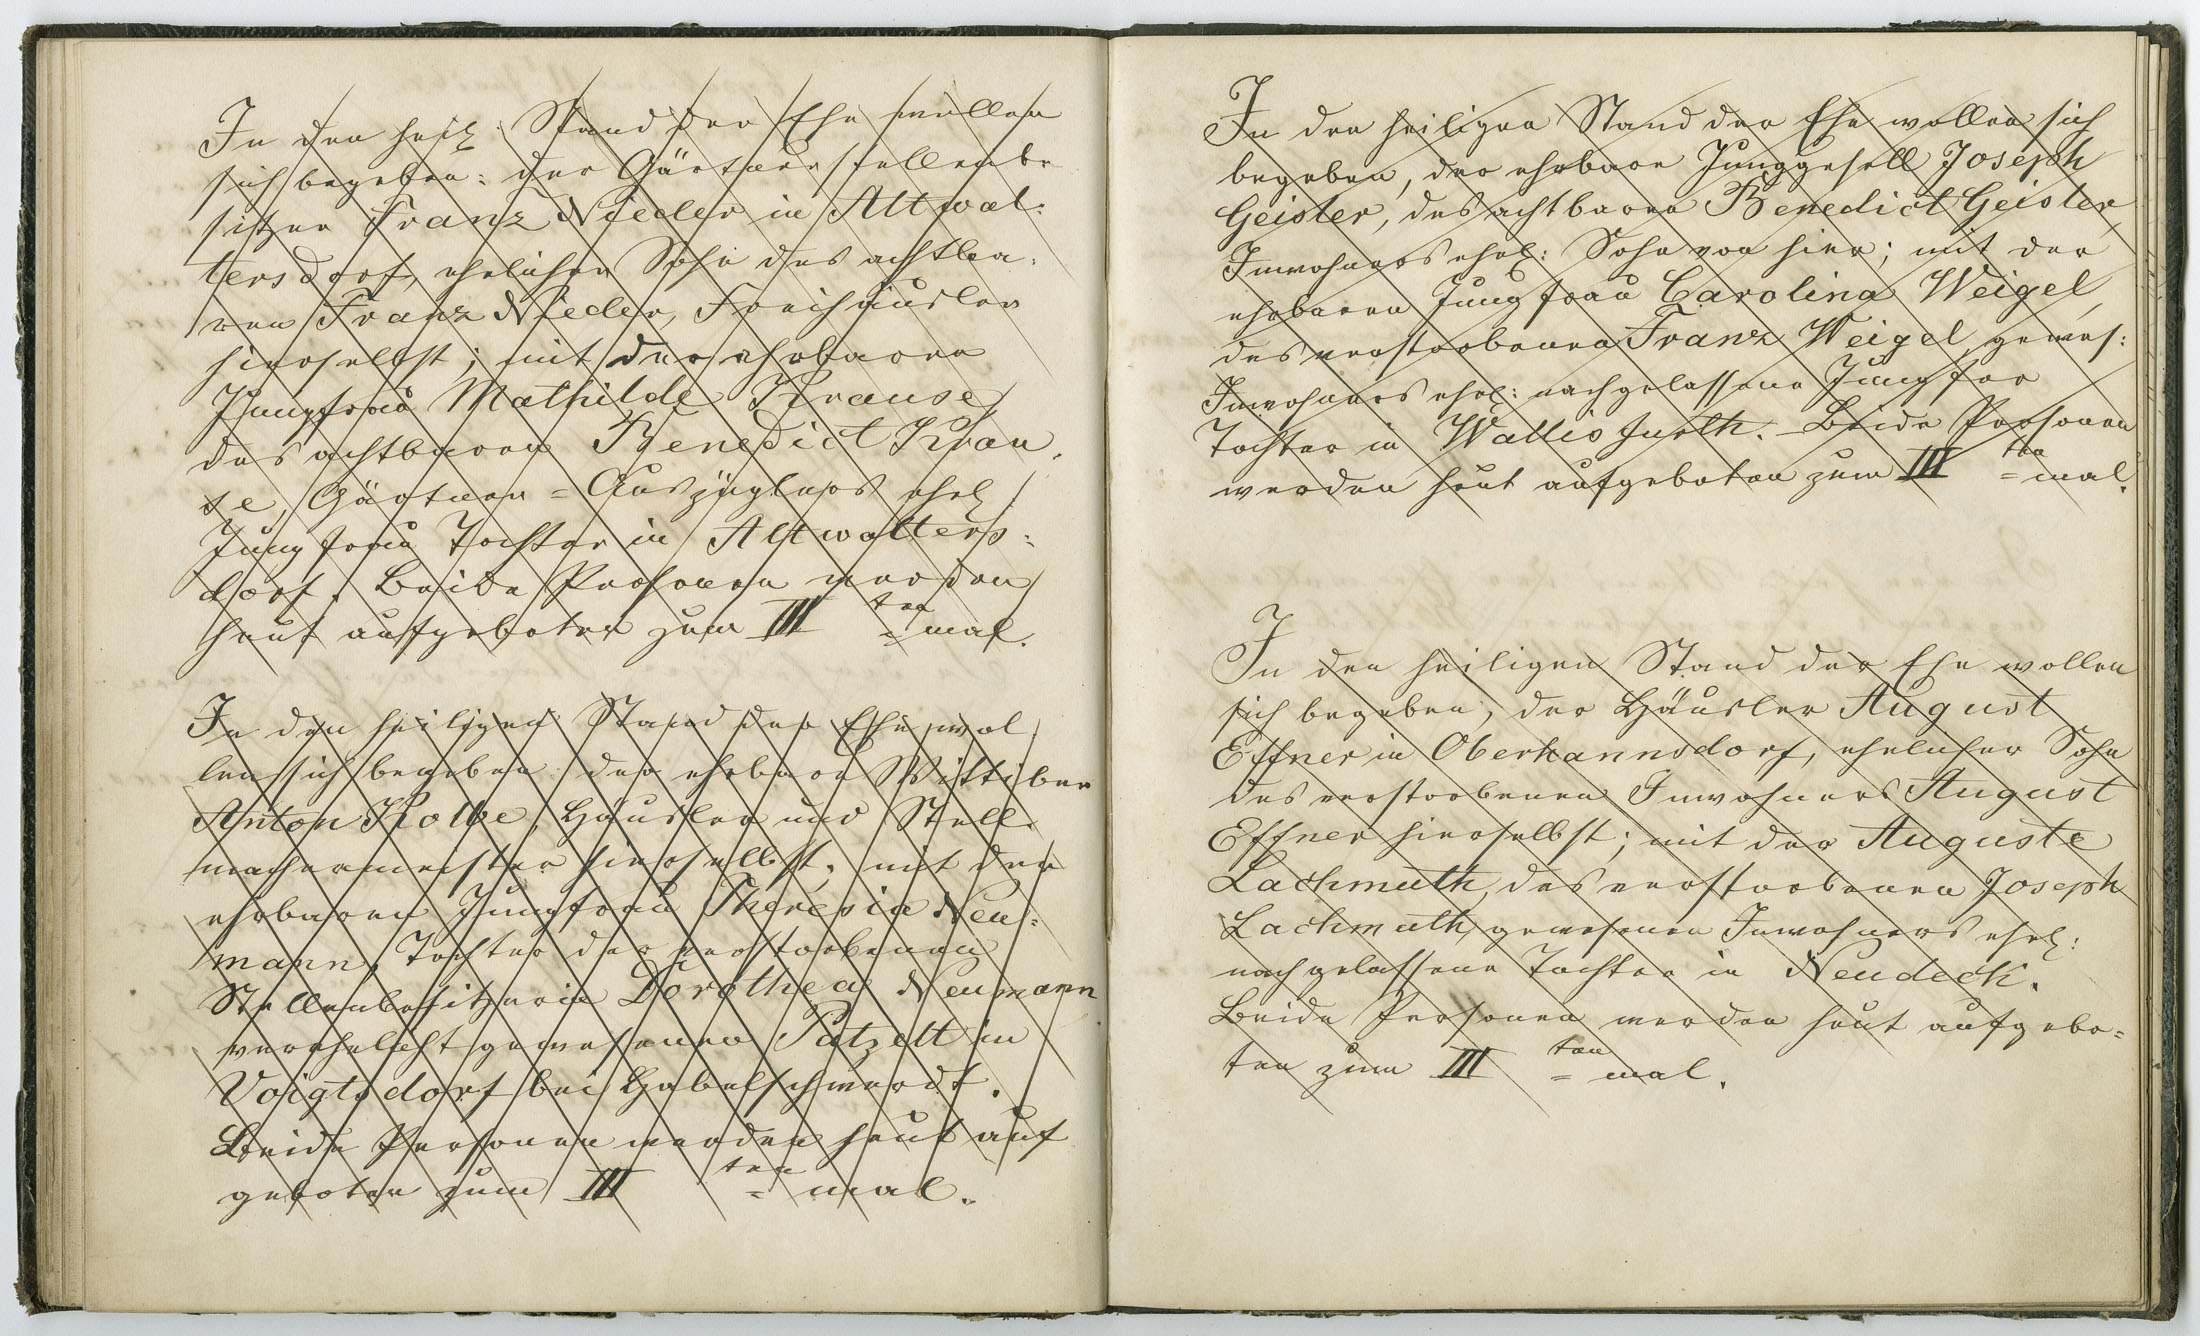 In den heil. Stand der Ehe wollen
sich begeben: der Gärtnerstellenbe
sitzer Franz Nieder in Altwal:
tersdorf, ehelicher Sohn des achtba:
ren Franz Nieder, Freihäusler
hierselbst; mit der ehrbaren
Jungfrau Mathilde Krause
des achtbaren Benedict Krau,
se, Gärtner = Auszüglers ehel.
Jungfrau Tochter in Altwalters:
dorf. Beide Personen werden
heut aufgeboten zum III ten = mal.
In den heiligen Stand der Ehe wol
len sich begeben: der ehrbare Wittiber
Anton Kolbe, Häusler und Stell.
machermeister hierselbst; mit der
ehrbaren Jungfrau Theresia Neu:
mann, Tochter der verstorbenen
Stellenbesitzerin Dorothea Neumann
verehelicht gewesenen Patzelt in
Voigtsdorf bei Habelschwerdt.
Beide Personen werden heut auf
geboten zum III ten = mal.
In den heiligen Stand der Ehe wollen sich
begeben, der ehrbare Junggesell Joseph
Geisler, des achtbaren Benedict Geisler,
Inwohners ehel: Sohn von hier; mit der
ehrbaren Jungfrau Carolina Weigel,
des verstorbenen Franz Weigel, gewes:
Inwohners ehel: nachgelassene Jungfer
Tochter in Wallisfurth. Beide Personen
werden heut aufgeboten zum III ten = mal.
In den heiligen Stand der Ehe wollen
sich begeben, der Häusler August
Effner in Oberhannsdorf, ehelicher Sohn
des verstorbenen Inwohners August
Effner hierselbst; mit der Auguste
Lachmuth, des verstorbenen Joseph
Lachmuth, gewesenen Inwohners ehel:
nachgelassene Tochter in Neudeck.
Beide Personen werden heut aufgebo=
ten zum III ten = mal.